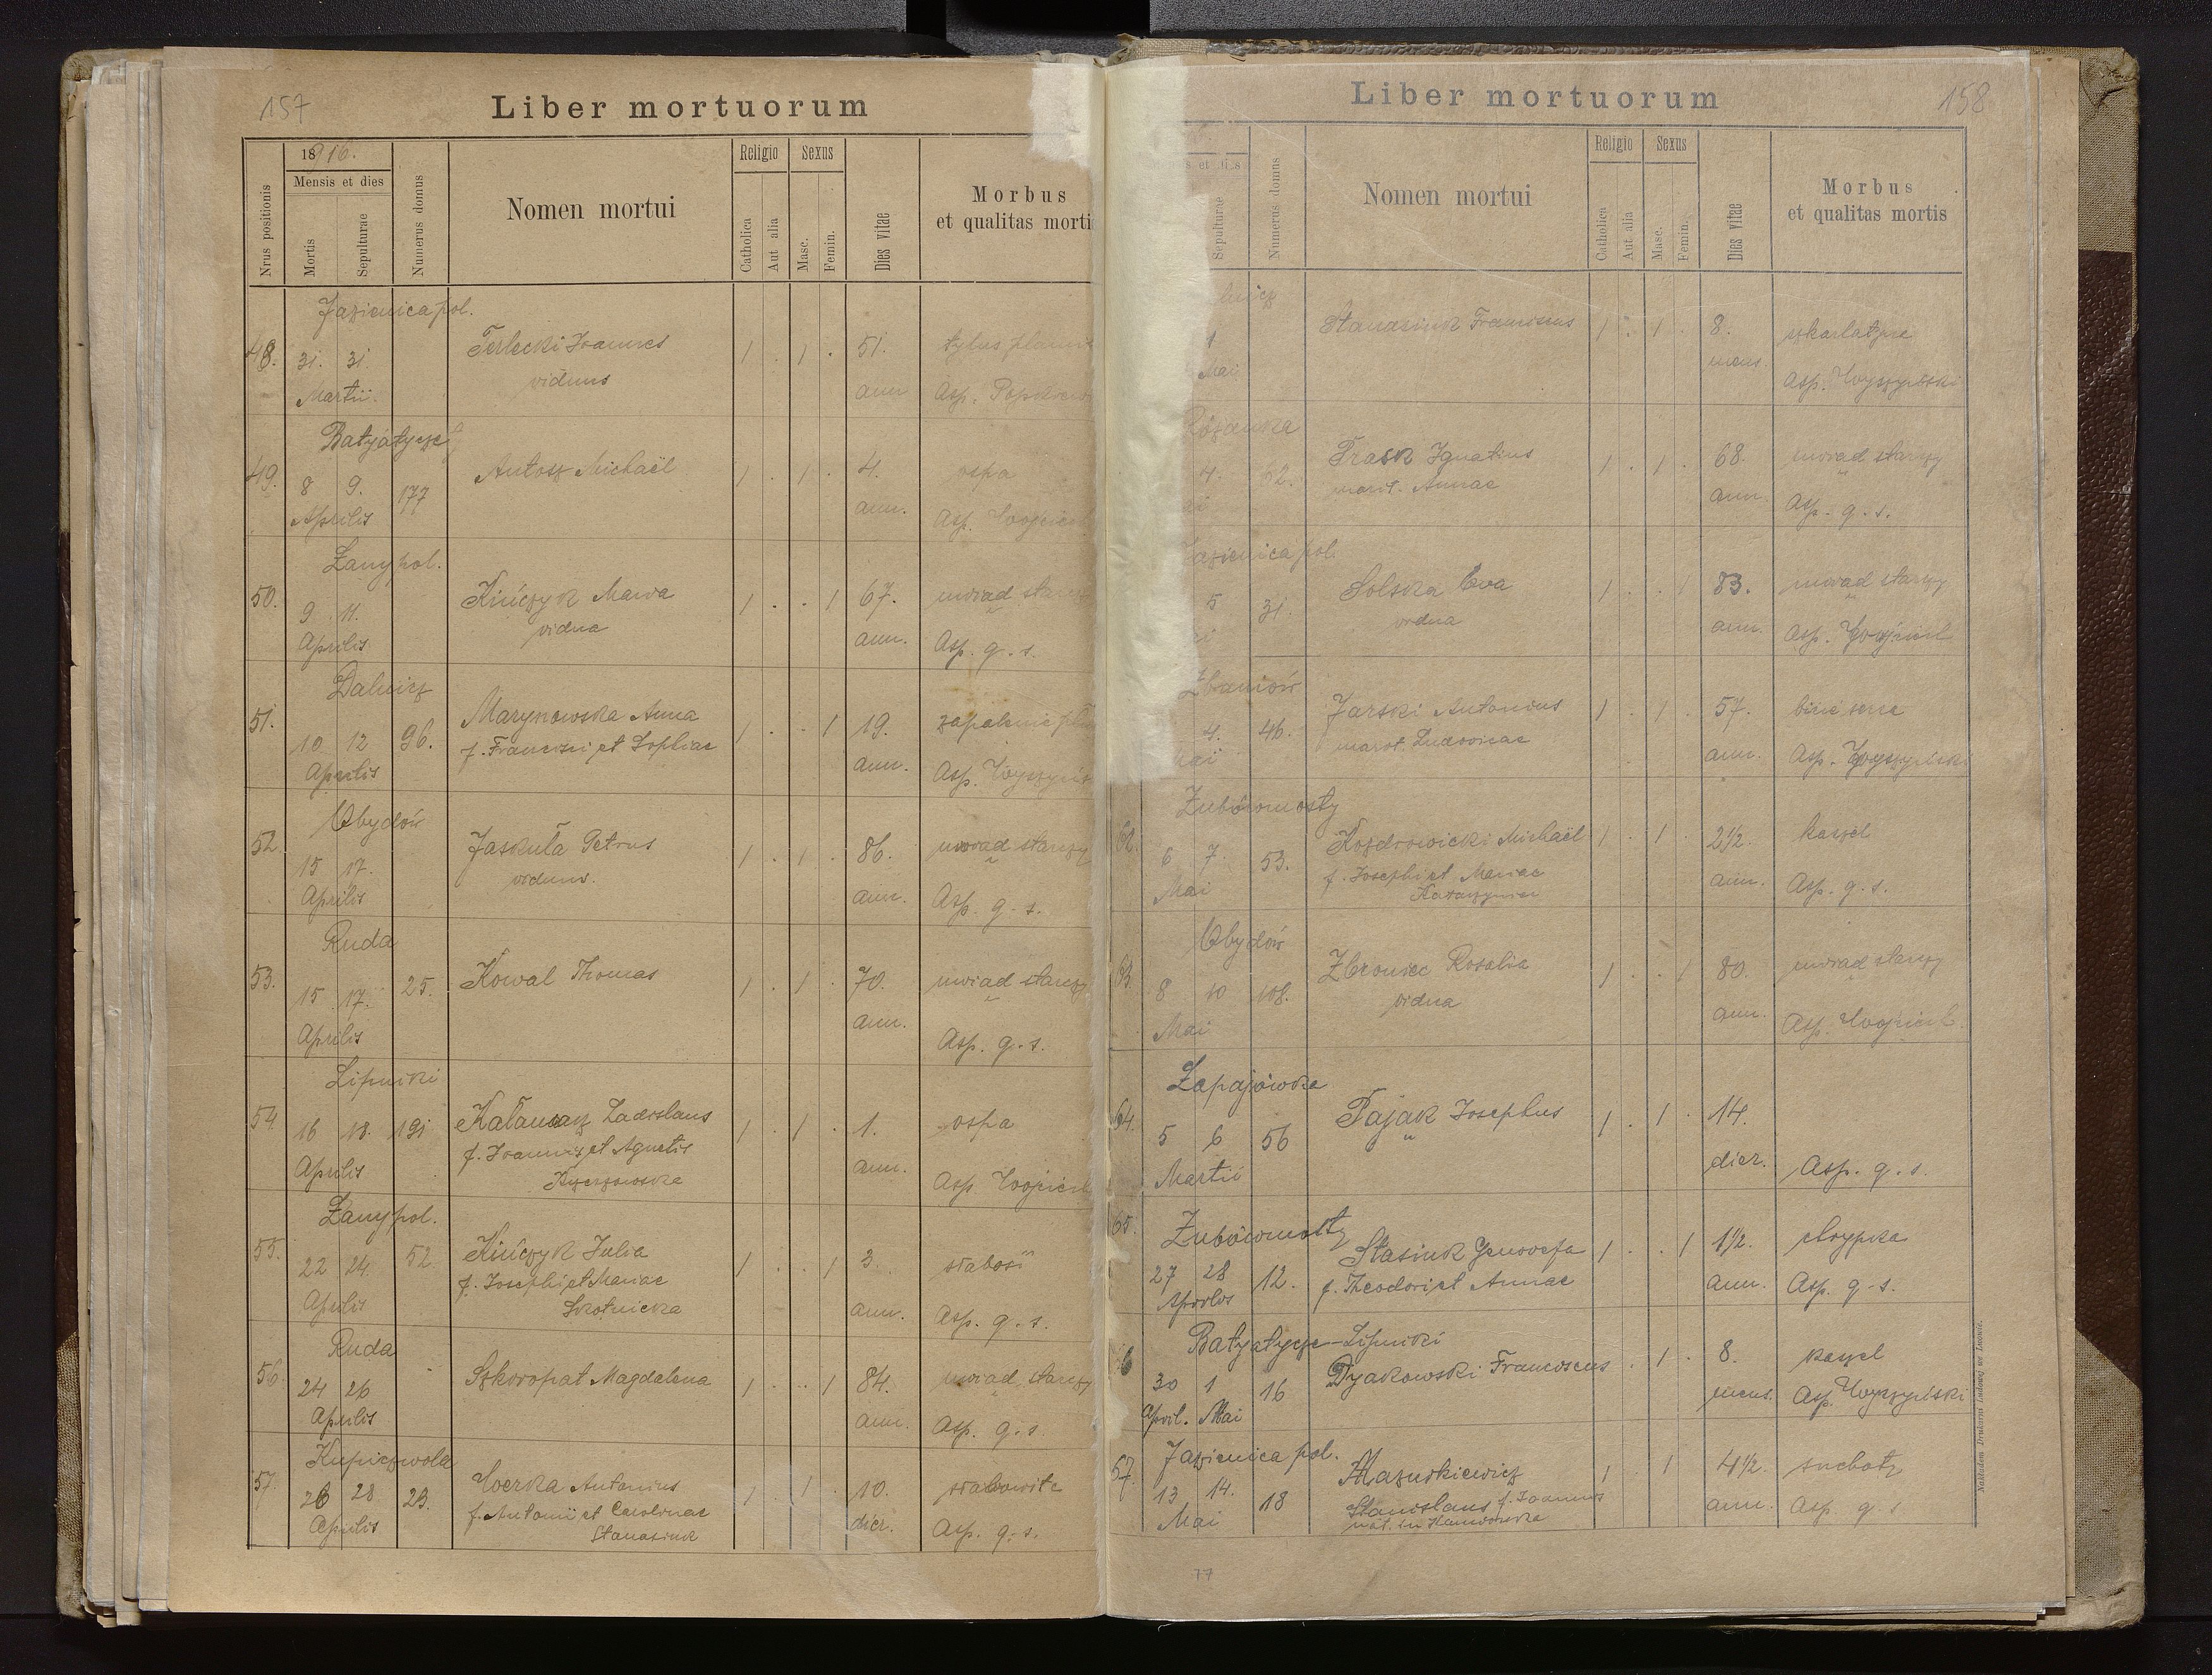 157
Liber mortuorum
1916.
Nrus positionis
Mensis et dies
Mortis
Sepulturae
Numerus domus
Nomen mortui
Religio
Catholica
Aut alia
Sexus
Masc.
Femin.
Dies vitae
Morbus
et qualitas mortis
Jazienica pol.
48. 31. 31. Terlecki Joannes 1 . 1 . 51. tyfus
Martii. viduus ann Asp.
Batyatycze
49. 8 9. 177 Antosz Michaël 1 . 1 . 4. ospa
Aprilis ann. Asp.
Łany pol.
50. 9 11. Kińczyk Maria 1 . . 1 67. uwiąd starczy
Aprilis vidua ann. Asp. q. s.
Dalnicz
51. 10 12 96. Marynowska Anna 1 . . 1 19. zapalenie
Aprilis f. Francisci et Sophiae ann. Asp.
Obydów
52. 15 17. Jaskuła Petrus 1 . 1 . 86. uwiąd starczy
Aprilis viduus. ann. Asp. q. s.
Ruda
53. 15 17. 25. Kowal Thomas 1 . 1 . 70. uwiąd starczy
Aprilis ann. Asp. q. s.
Lipniki
54. 16 18. 191 Ladislaus 1 . 1 . 1. ospa
Aprilis f. Joannis et Agnetis ann. Asp
Łany pol.
55. 22 24. 52. Kińczyk Julia 1 . . 1 3. słabość
Aprilis f. Josephi et Mariae ann. Asp. q. s.
Skotnicka
Ruda
56. 24 26 Szkoropat Magdalena 1 . . 1 84. uwiąd starczy
Aprilis ann. Asp. q. s.
Kupiczwola
57. 26 28 23. Woerka Antonius 1 . 1 . 10. słabowite
Aprilis f. Antonii et Carolinae dier. Asp. q. s.
Stanasiuk
158
Liber mortuorum
Sepulturae
Numerus domus
Nomen mortui
Religio
Catholica
Aut alia
Sexus
Masc.
Femin.
Dies vitae
Morbus
et qualitas mortis
1 Stanasiuk Franciscus 1 . 1 . 8. szkarlatyna
Mai mens. Asp. Wyszyński
Różanka
4. 62. Ignatius 1 . 1 . 68. uwiąd starczy
marit. Annae ann. Asp. q. s.
Jazienica pol.
5 31. Solska Eva 1 . . 1 83. uwiąd starczy
vidua ann. Asp.
4. 46. Jarski Antonius 1 . 1 . 57. bicie serca
marit. Ludovicae ann. Asp. Wyszyński
Zubówmosty
62. 6 7. 53. Kozdrowicki Michaël 1 . 1 . 2 1/2. kaszel
Mai f. Josephi et Mariae ann. Asp. q. s.
Obydów
63. 8 10 108. Zbroniec Rosalia 1 . . 1 80. uwiąd starczy
Mai vidua ann. Asp.
Łapajówka
64. 5 6 56 Pająk Josephus 1 . 1 . 14.
Martii dier. Asp. q. s.
65. Zubówmosty
27 28 12. Stasiuk Genovefa 1 . . 1 1 1/2. chrypka
Aprilis f. Theodori et Annae ann. Asp. q. s.
Batyatycze-Lipniki
30 1 16 Dyakowski Franciscus . 1 . 8. kaszel
April. Mai mens. Asp. Wyszyński
Jazienica pol.
67. 13 14. 18 Mazurkiewicz 1 . 1 4 1/2. suchoty
Mai Stanislaus f. Joannis ann. Asp. q s
nat. in
77
Nakładem Drukarni Ludowej we Lwowie.